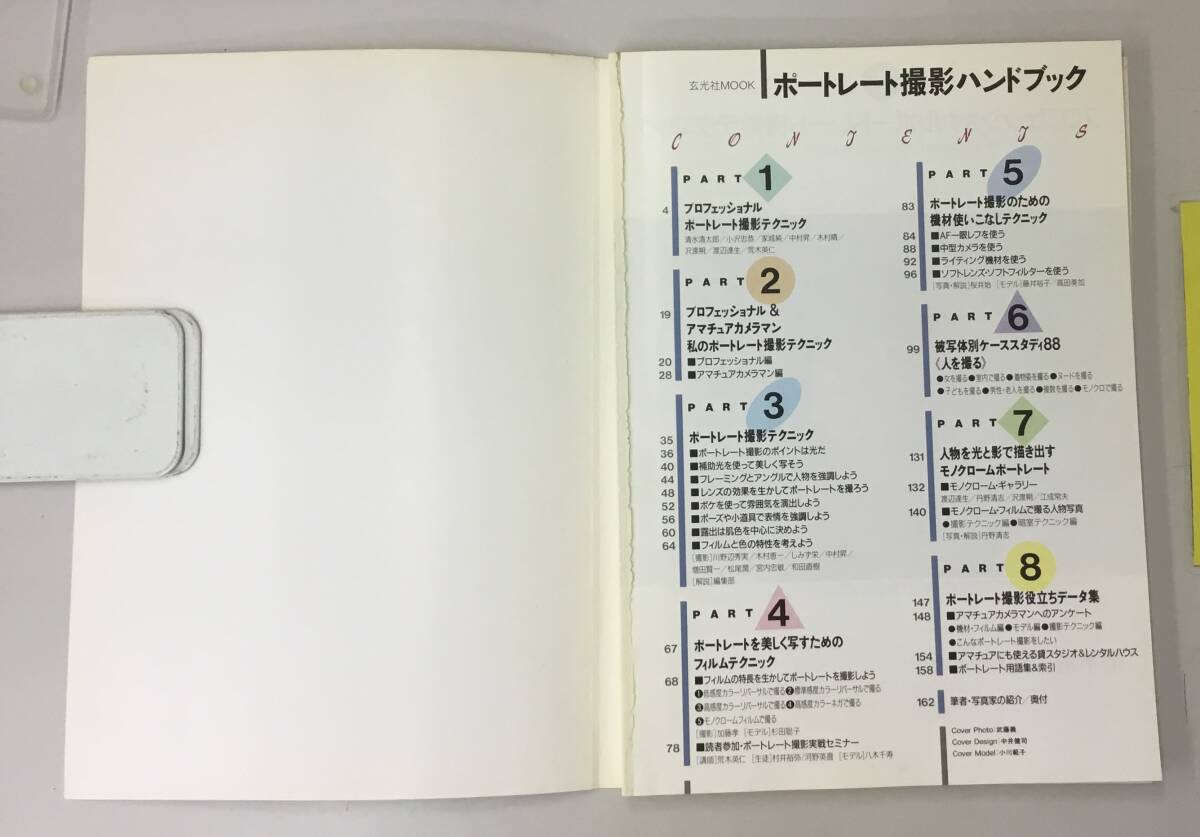 玄光社MOOK
ポートレート撮影ハンドブック
CONTENTS
PART 1
4 プロフェッショナル
ポートレート撮影テクニック
清水清太郎/小沢忠恭/家城純/中村昇/木村晴/
沢渡朔/渡辺達生/荒木英仁
PART 2
19 プロフェッショナル &
アマチュアカメラマン
私のポートレート撮影テクニック
20 ■プロフェッショナル編
28 ■アマチュアカメラマン編
PART 3
35 ポートレート撮影テクニック
36 ■ポートレート撮影のポイントは光だ
40 ■補助光を使って美しく写そう
44 ■フレーミングとアングルで人物を強調しよう
48 ■レンズの効果を生かしてポートレートを撮ろう
52 ■ボケを使って雰囲気を演出しよう
56 ■ポーズや小道具で表情を強調しよう
60 ■露出は肌色を中心に決めよう
64 ■フィルムと色の特性を考えよう
[撮影]川野辺秀実/木村恵一/しみず栄/中村昇/
増田賢一/松尾薫/宮内忠敏/和田直樹
[解説]編集部
PART 4
67 ポートレートを美しく写すための
フィルムテクニック
68 ■フィルムの特長を生かしてポートレートを撮影しよう
❶低感度カラーリバーサルで撮る❷標準感度カラーリバーサルで撮る
❸高感度カラーリバーサルで撮る❹高感度カラーネガで撮る
❺モノクロームフィルムで撮る
[撮影]加藤孝 [モデル]杉田聡子
78 ■読者参加・ポートレート撮影実戦セミナー
[講師]荒木英仁 [生徒]村井裕弥/河野英喜 [モデル]八木千寿
PART 5
83 ポートレート撮影のための
機材使いこなしテクニック
84 ■AF一眼レフを使う
88 ■中型カメラを使う
92 ■ライティング機材を使う
96 ■ソフトレンズ・ソフトフィルターを使う
[写真・解説]桜井始 [モデル]藤井裕子/高田美加
PART 6
99 被写体別ケーススタディ88
《人を撮る》
●女を撮る●室内で撮る●着物姿を撮る●ヌードを撮る
●子どもを撮る●男性・老人を撮る●複数を撮る●モノクロで撮る
PART 7
131 人物を光と影で描き出す
モノクロームポートレート
132 ■モノクローム・ギャラリー
渡辺達生/丹野清志/沢渡朔/江成常夫
140 ■モノクローム・フィルムで撮る人物写真
●撮影テクニック編●暗室テクニック編
[写真・解説]丹野清志
PART 8
147 ポートレート撮影役立ちデータ集
148 ■アマチュアカメラマンへのアンケート
●機材・フィルム編●モデル編●撮影テクニック編
●こんなポートレート撮影をしたい
154 ■アマチュアにも使える貸スタジオ&レンタルハウス
158 ■ポートレート用語集&索引
162 筆者・写真家の紹介/奥付
Cover Photo:武藤義
Cover Design:中井健司
Cover Model:小川範子